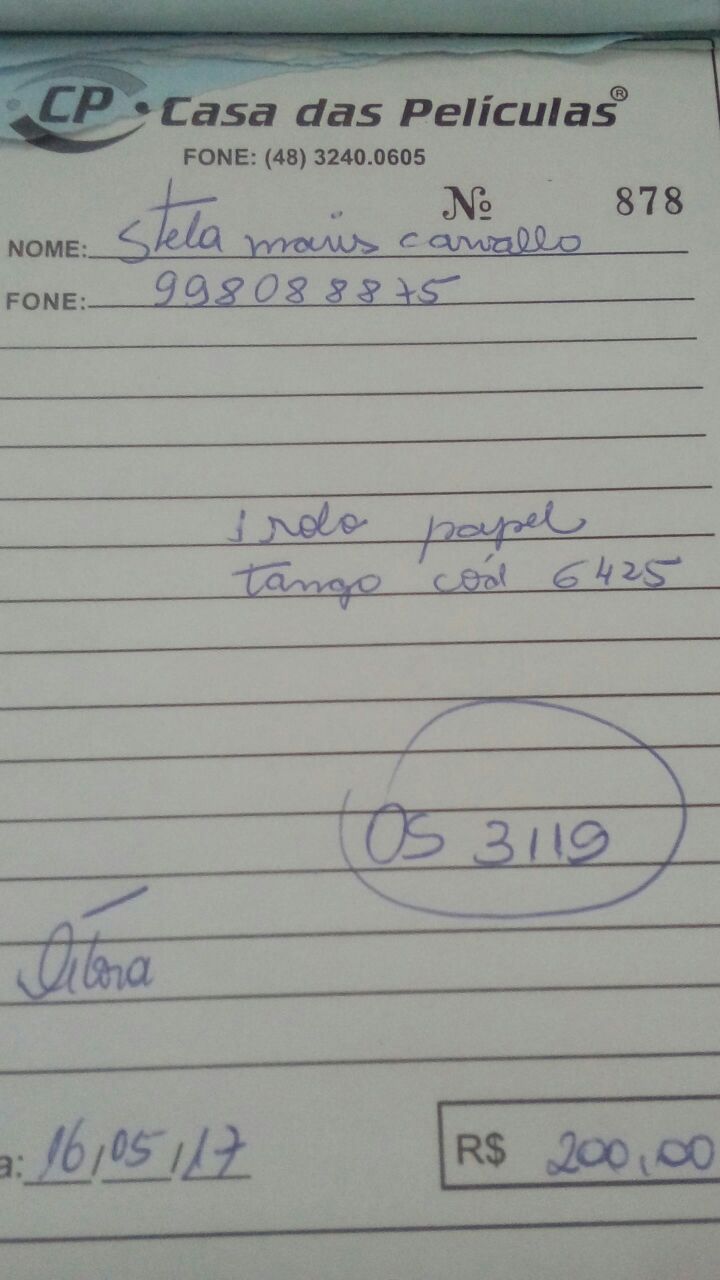 CP Casa das Películas®
FONE: (48) 3240.0605
Nº 878
NOME: Stela maris carvallo
FONE: 998088875
1 rolo papel
tango cód 6425
OS 3119
Débora
a: 16/05/17
R$ 200,00